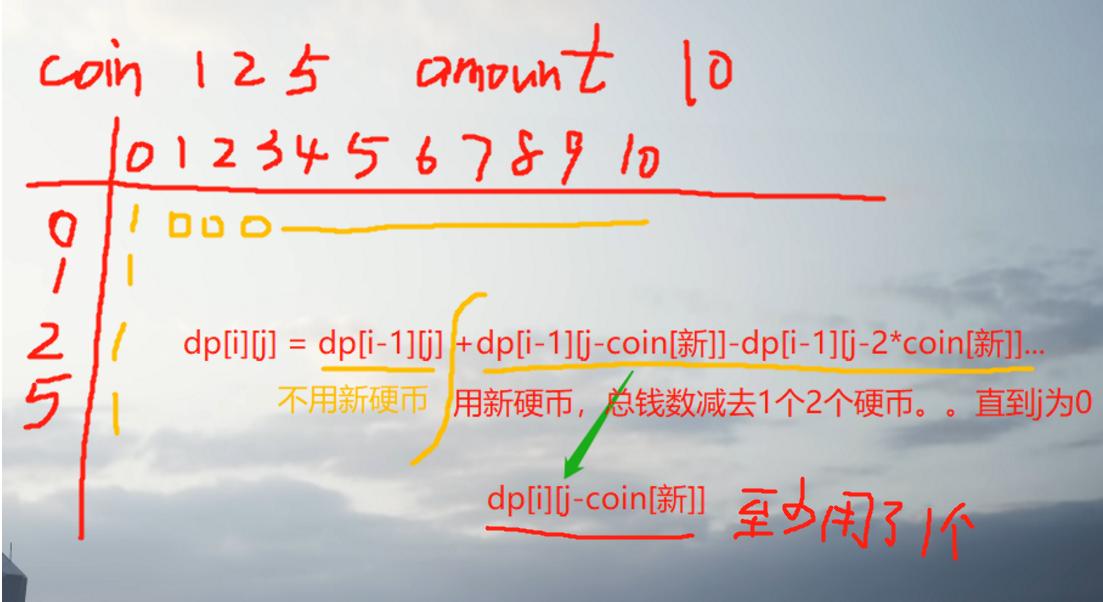 coin 1 2 5 amount 10
0 1 2 3 4 5 6 7 8 9 10
0 1 0 0 0
1 1
2 1
dp[i][j] = dp[i-1][j] +dp[i-1][j-coin[新]]-dp[i-1][j-2*coin[新]]...
5 1
不用新硬币 用新硬币，总钱数减去1个2个硬币。。直到j为0
dp[i][j-coin[新]] 至少用了1个